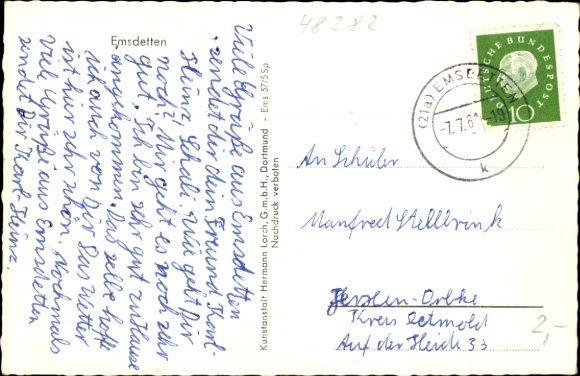 48282
Emsdetten
Viele Grüße aus Emsdetten
sendet dir dein Freund Karl-
Heinz Wie geht Dir
noch? Mir geht es noch sehr
gut. Ich bin sehr gut zuhause
angekommen. Das selbe hoffe
ich auch von Dir. Das Wetter
ist hier sehr schön. Nochmals
viel Grüße aus Emsdetten
sendet Dir Karl-Heinz.
Kunstanstalt Hermann Lorch, G.m.b.H., Dortmund - Ems 57/5Sp
Nachdruck verboten
DEUTSCHE BUNDESPOST
10
(21a) EMSDETTEN
-7.7.61-19
k
An Schüler
Manfred Stellbrink
Kreis Detmold
Auf der Heide 33
2,-